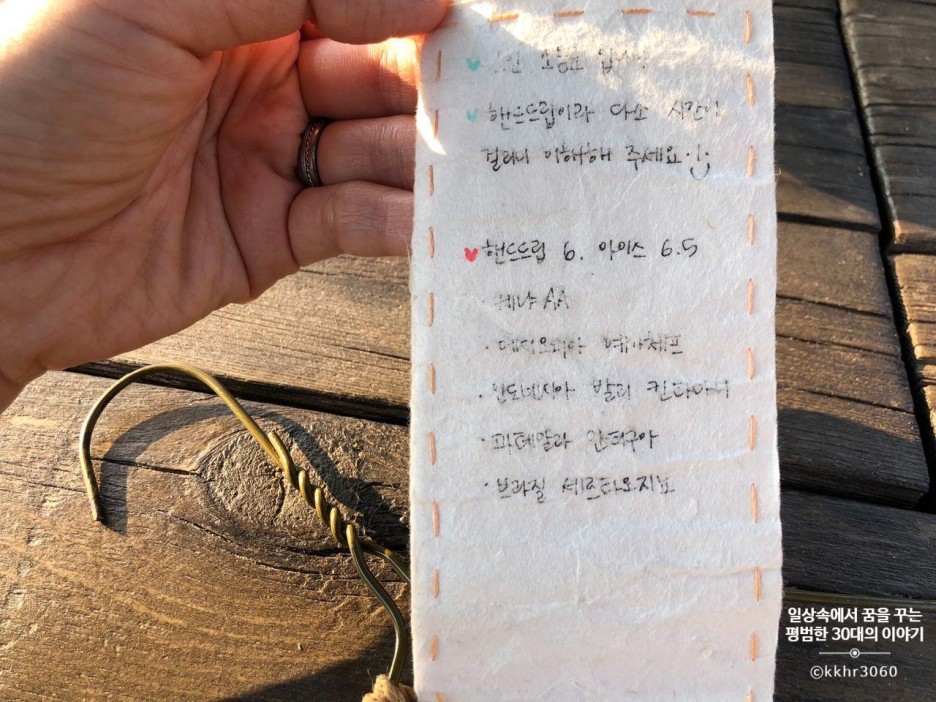 핸드드립이라 다소 시간이
걸리니 이해해 주세요:)
핸드드립 6. 아이스 6.5
·케냐 AA
·에티오피아 예가체프
·인도네시아 발리 킨타마니
·과테말라 안티구아
·브라질 세르라도
일상속에서 꿈을 꾸는
평범한 30대의 이야기
©kkhr3060